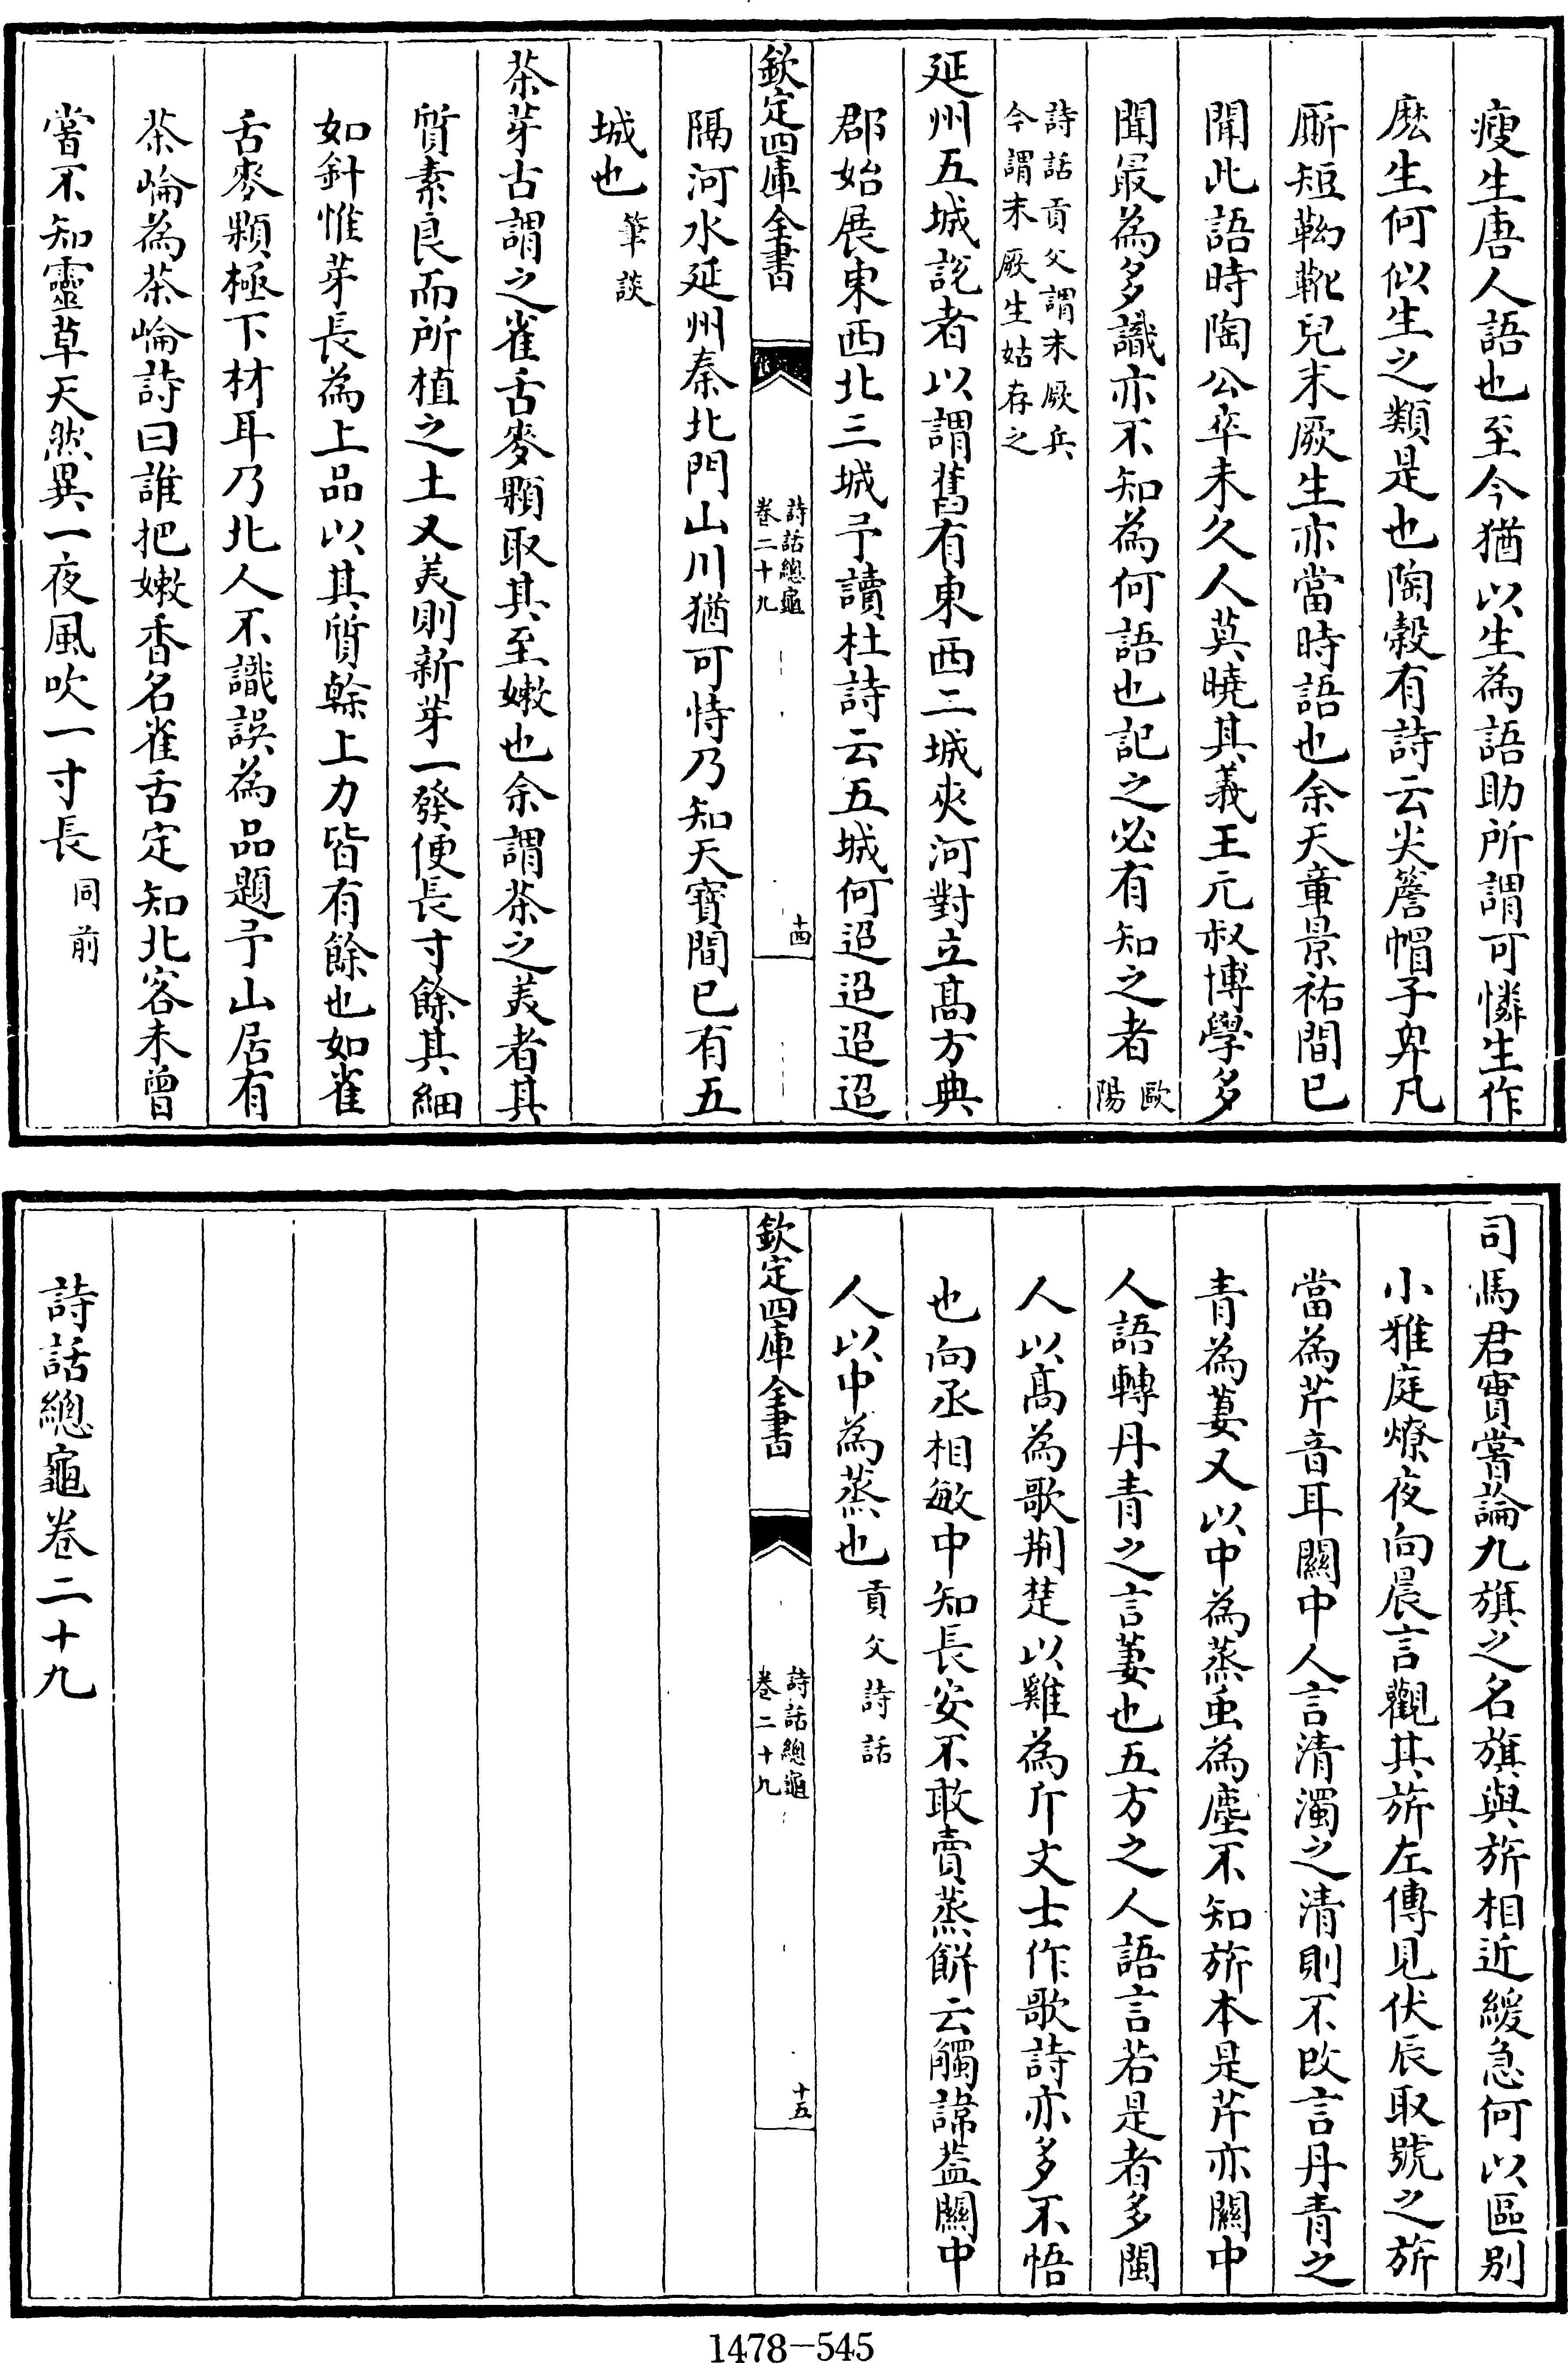 瘦生唐人語也至今猶以生為語助所謂可憐生作
麽生何似生之類是也陶榖有詩云尖簷帽子卑凡
厮短靿靴兒末厥生亦當時語也余天童景祐間已
聞此語時陶公卒未久人莫曉其義王元叔博學多
聞最為多識亦不知為何語也記之必有知之者歐陽
詩話貢父謂末厥兵
今謂末厥生姑存之
延州五城說者以謂舊有東西二城夾河對立髙方典
郡始展東西北三城予讀杜詩云五城何迢迢迢迢
欽定四庫全書
詩話總龜
卷二十九
十四
隔河水延州秦北門山川猶可恃乃知天寳間已有五
城也筆談
茶芽古謂之雀舌麥顆取其至嫩也余謂茶之美者其
質素良而所植之土又美則新芽一發便長寸餘其細
如針惟芽長為上品以其質榦上力皆有餘也如雀
舌麥顆極下材耳乃北人不識誤為品題予山居有
茶崘為茶崘詩曰誰把嫩香名雀舌定知北客未曾
嘗不知靈草天然異一夜風吹一寸長同前
司馬君實嘗論九旗之名旗與旂相近緩急何以區别
小雅庭燎夜向晨言觀其旂左傳見伏辰取號之旂
當為芹音耳關中人言清濁之清則不改言丹青之
青為萋又以中為蒸䖝為塵不知旂本是芹亦關中
人語轉丹青之言萋也五方之人語言若是者多閩
人以髙為歌荆楚以雞為斤文士作歌詩亦多不悟
也向丞相敏中知長安不敢賣蒸餅云觸諱葢關中
人以中為蒸也貢父詩話
欽定四庫全書
詩話總龜
卷二十九
十五
詩話總龜卷二十九
1478-545